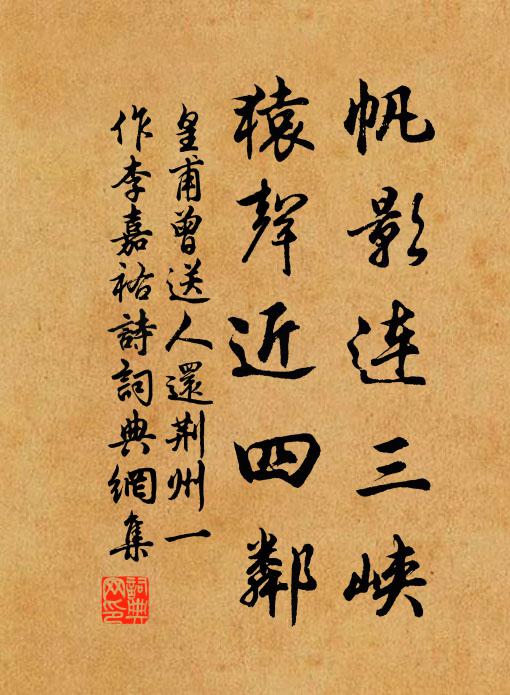 帆影连三峡
猿聲近四鄰
皇甫曾送人還荆州一
作李嘉祐詩詞典網集
詞典網印